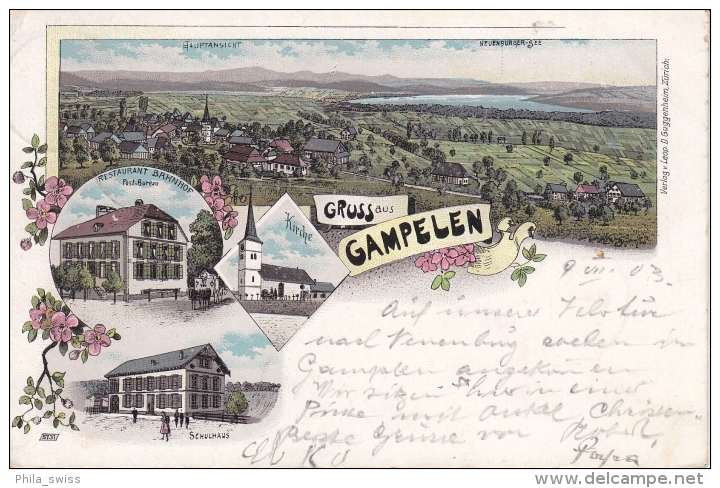 HAUPTANSICHT
NEUENBURGER-SEE
Verlag v. Leop. D. Guggenheim, Zürich.
RESTAURANT BAHNHOF
Post-Bureau
Kirche
GRUSS aus
GAMPELEN
SCHULHAUS
9 VII. 03.
Auf unserer Velotur
nach Neuenburg soeben in
Gamplen angekomen
Wir sitzen hier in einer
mit Onkel Christen
Beste Grüsse von
Papa
Phila_swiss
www.delcampe.net